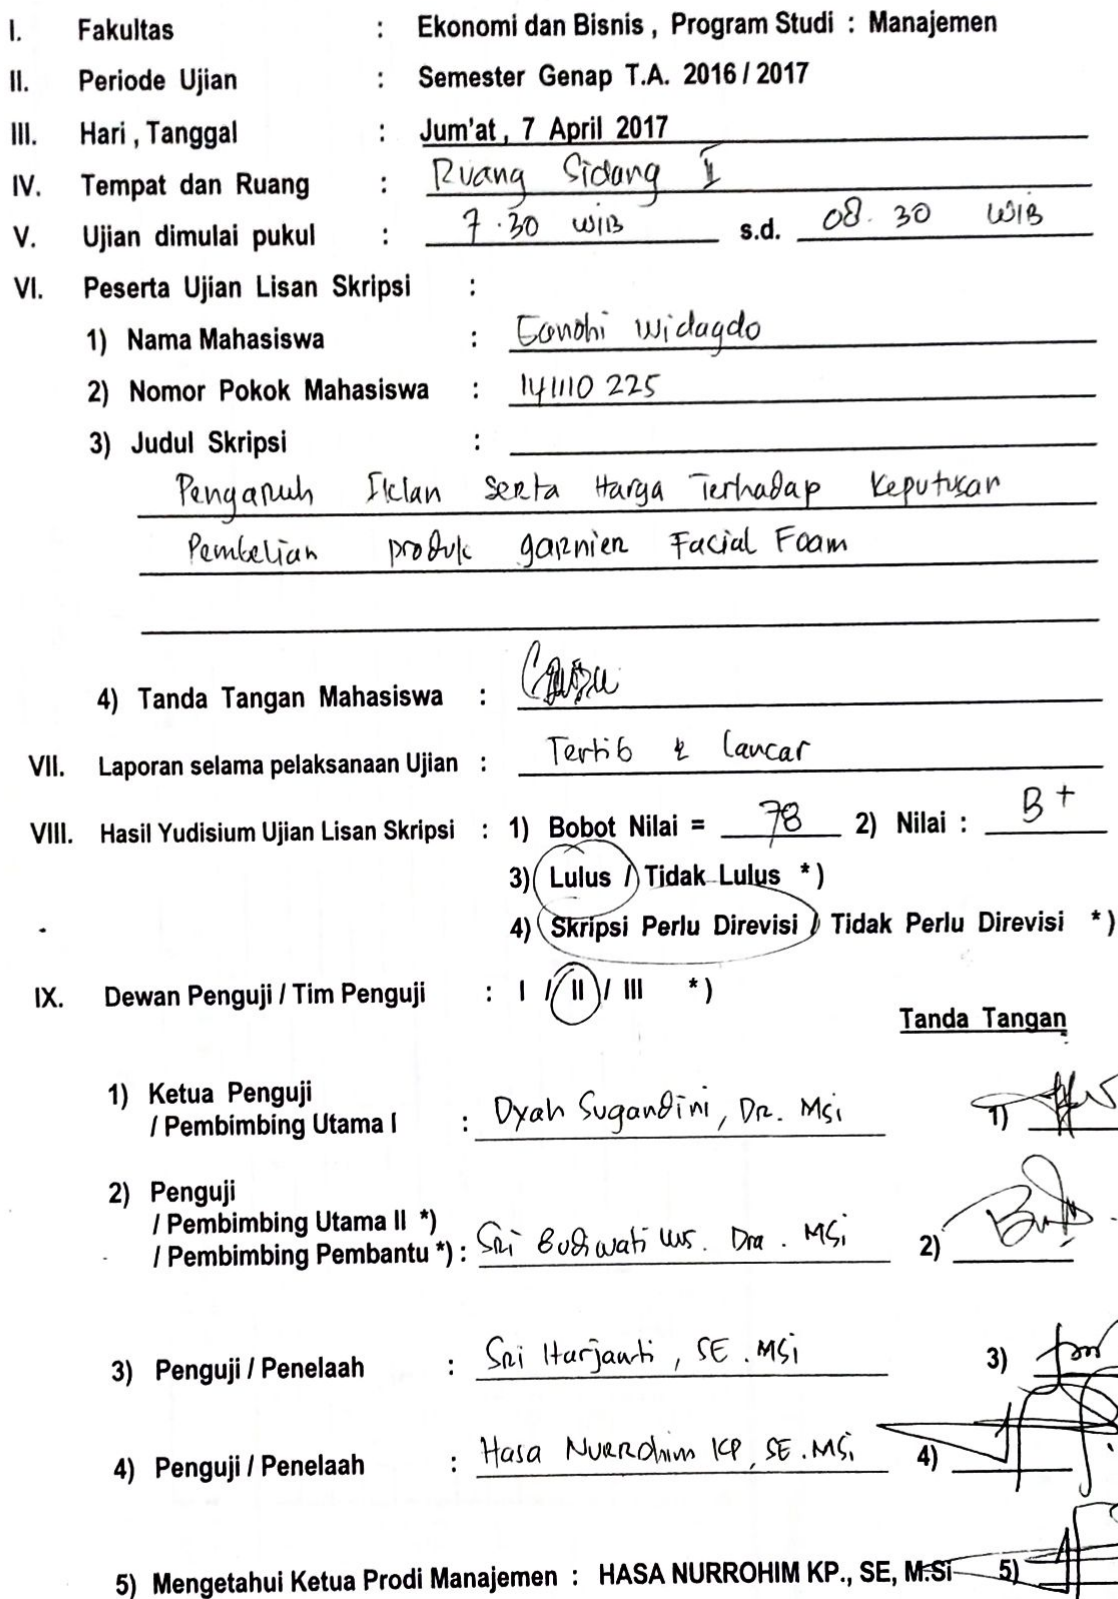 I. Fakultas : Ekonomi dan Bisnis , Program Studi : Manajemen
II. Periode Ujian : Semester Genap T.A. 2016 / 2017
III. Hari , Tanggal : Jum'at , 7 April 2017
IV. Tempat dan Ruang : Ruang Sidang I
V. Ujian dimulai pukul : 7.30 WIB s.d. 08.30 WIB
VI. Peserta Ujian Lisan Skripsi :
1) Nama Mahasiswa : Widagdo
2) Nomor Pokok Mahasiswa : 141110 225
3) Judul Skripsi :
Pengaruh Iklan serta Harga Terhadap Keputusan
Pembelian produk garnier Facial Foam
4) Tanda Tangan Mahasiswa :
VII. Laporan selama pelaksanaan Ujian : Tertib & lancar
VIII. Hasil Yudisium Ujian Lisan Skripsi : 1) Bobot Nilai = 78 2) Nilai : B+
3) Lulus / Tidak Lulus *)
4) Skripsi Perlu Direvisi / Tidak Perlu Direvisi *)
IX. Dewan Penguji / Tim Penguji : I / II / III *)
Tanda Tangan
1) Ketua Penguji
/ Pembimbing Utama I : Dyah Sugandini, Dr. Msi 1)
2) Penguji
/ Pembimbing Utama II *)
/ Pembimbing Pembantu *) : Sri Budiwati . Dra . MSi 2)
3) Penguji / Penelaah : Sri Harjanti, SE . MSi 3)
4) Penguji / Penelaah : Hasa Nurrohim KP, SE . MSi 4)
5) Mengetahui Ketua Prodi Manajemen : HASA NURROHIM KP., SE, M.Si 5)